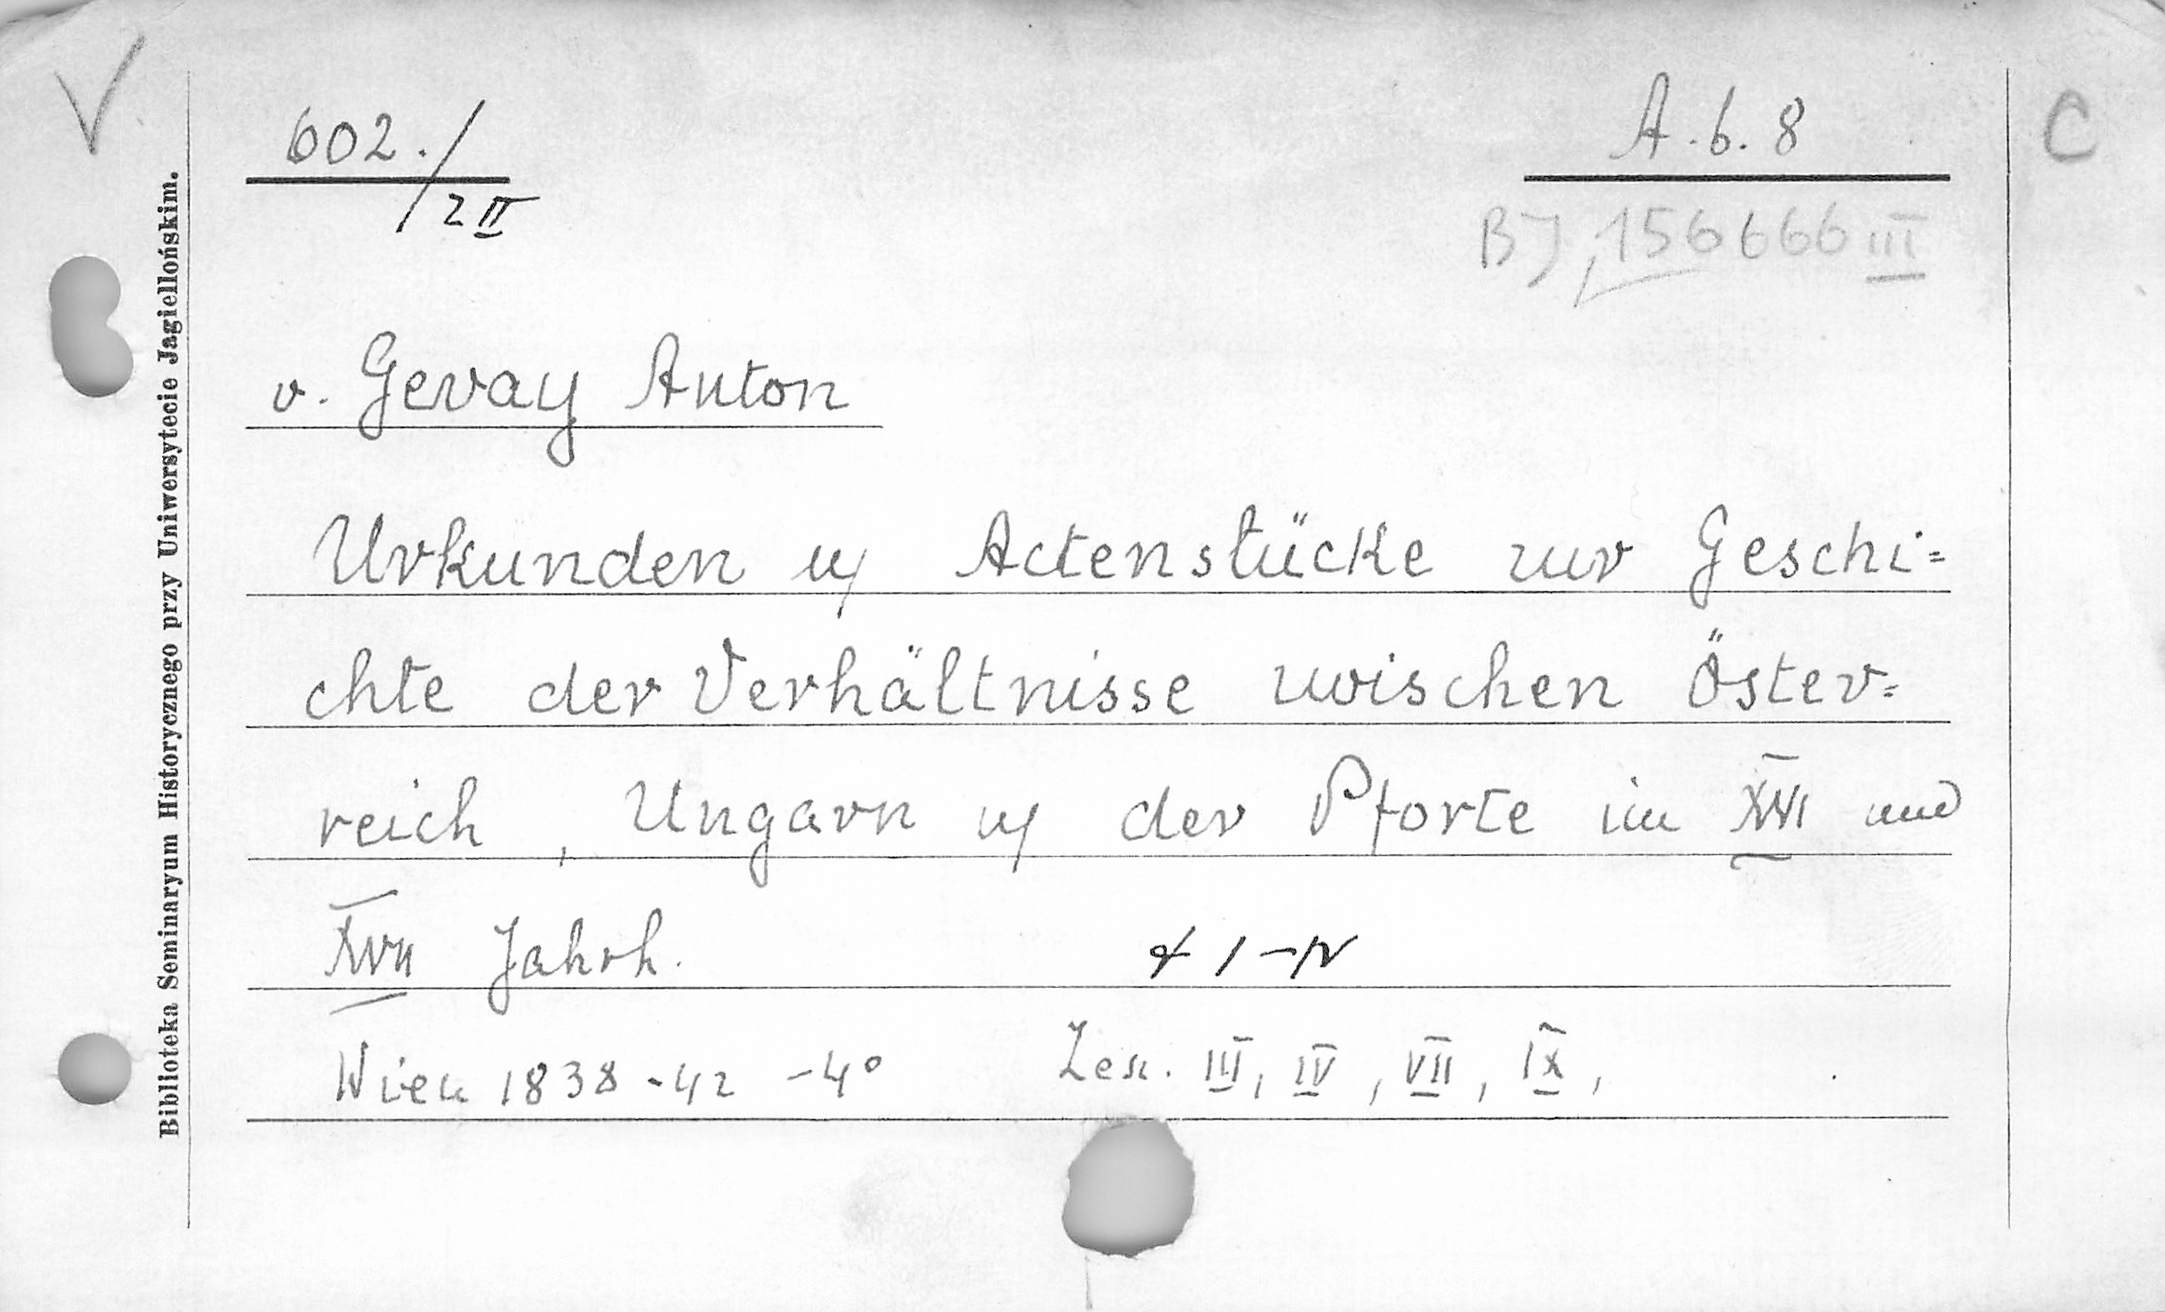 V
602./2 II
A.b.8
C
BJ, 156666 III
Biblioteka Seminaryum Historycznego przy Uniwersytecie Jagiellońskim.
v. Gevay Anton
Urkunden u/ Actenstücke zur Geschi=
chte der Verhältnisse zwischen Öster=
reich, Ungarn u/ der Pforte im XVI und
XVII Jahrh. I-IV
Wien 1838-42 -4° Zesz. III, IV, VII, IX,